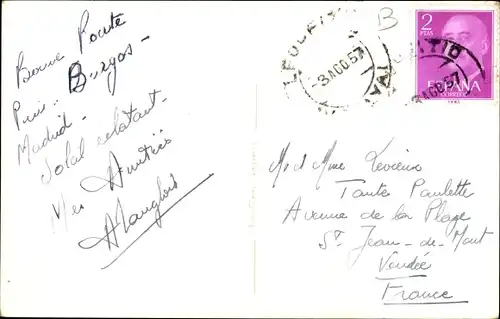 Bonne Route
Puis Burgos -
Madrid -
Soleil éclatant -
Mes Amitiés
B
- 3 AGO 57
VALLADOLID
3 AGO 57
2
PTAS
ESPAÑA
CORREOS
M. et Mme
Tante Paulette
Avenue de la Plage
St Jean-de-Mont
Vendée
France